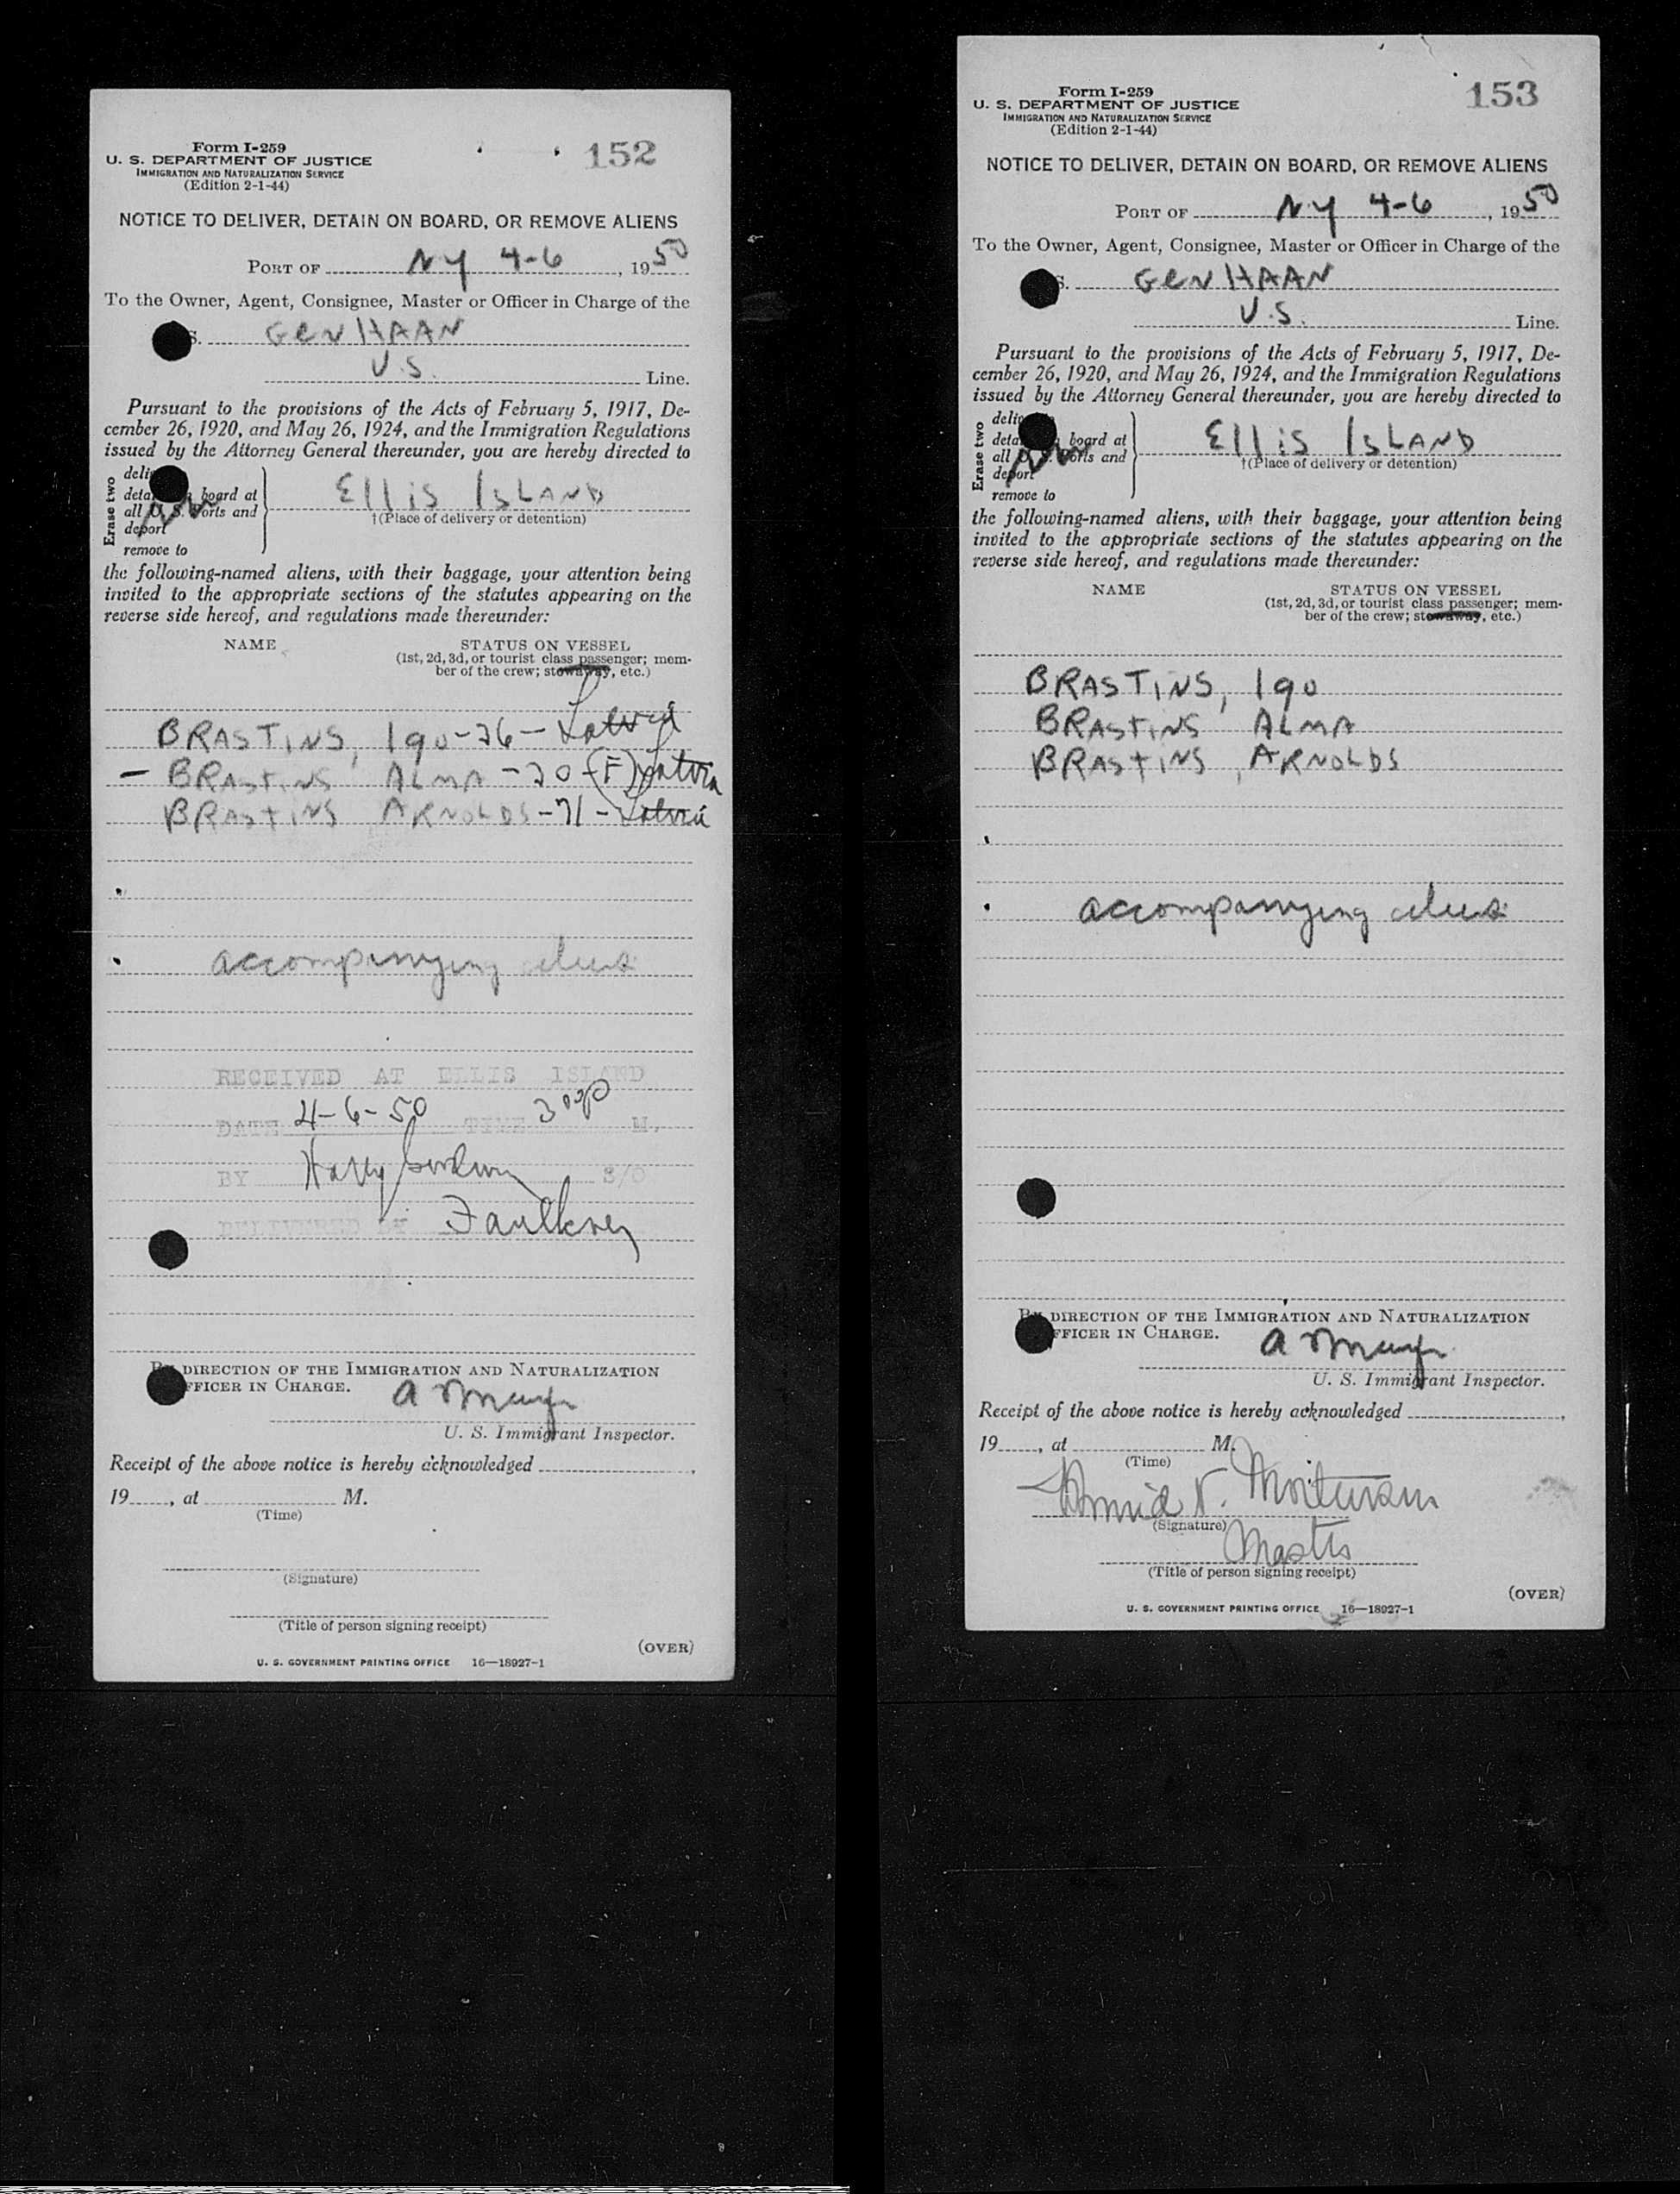 Form I-259
U. S. DEPARTMENT OF JUSTICE
IMMIGRATION AND NATURALIZATION SERVICE
(Edition 2-1-44)
152
NOTICE TO DELIVER, DETAIN ON BOARD, OR REMOVE ALIENS
PORT OF NY 4-6, 1950
To the Owner, Agent, Consignee, Master or Officer in Charge of the
S. GEN HAAN
U.S. Line.
Pursuant to the provisions of the Acts of February 5, 1917, De-
cember 26, 1920, and May 26, 1924, and the Immigration Regulations
issued by the Attorney General thereunder, you are hereby directed to
Erase two
deli
deta board at
all U. S. Ports and
deport
remove to
Ellis Island
†(Place of delivery or detention)
the following-named aliens, with their baggage, your attention being
invited to the appropriate sections of the statutes appearing on the
reverse side hereof, and regulations made thereunder:
NAME STATUS ON VESSEL
(1st, 2d, 3d, or tourist class passenger; mem-
ber of the crew; stowaway, etc.)
BRASTINS, IGO-26-Latvia
- BRASTINS ALMA-20-(F) Latvia
BRASTINS ARNOLDS-71-Latvia
accompanying
RECEIVED AT ELLIS ISLAND
DATE 4-6-50 TIME 3 00 P M.
BY Harry S/O
DELIVERED BY Faulkner
BY DIRECTION OF THE IMMIGRATION AND NATURALIZATION
OFFICER IN CHARGE.
U. S. Immigrant Inspector.
Receipt of the above notice is hereby acknowledged
19, at M.
(Time)
(Signature)
(Title of person signing receipt)
(OVER)
U. S. GOVERNMENT PRINTING OFFICE 16—18927-1
Form I-259
U. S. DEPARTMENT OF JUSTICE
IMMIGRATION AND NATURALIZATION SERVICE
(Edition 2-1-44)
153
NOTICE TO DELIVER, DETAIN ON BOARD, OR REMOVE ALIENS
PORT OF NY 4-6, 1950
To the Owner, Agent, Consignee, Master or Officer in Charge of the
S. GEN HAAN
U.S. Line.
Pursuant to the provisions of the Acts of February 5, 1917, De-
cember 26, 1920, and May 26, 1924, and the Immigration Regulations
issued by the Attorney General thereunder, you are hereby directed to
Erase two
deliv
deta board at
all U. S. Ports and
deport
remove to
Ellis Island
†(Place of delivery or detention)
the following-named aliens, with their baggage, your attention being
invited to the appropriate sections of the statutes appearing on the
reverse side hereof, and regulations made thereunder:
NAME STATUS ON VESSEL
(1st, 2d, 3d, or tourist class passenger; mem-
ber of the crew; stowaway, etc.)
BRASTINS, IGO
BRASTINS ALMA
BRASTINS, ARNOLDS
accompanying
BY DIRECTION OF THE IMMIGRATION AND NATURALIZATION
OFFICER IN CHARGE.
U. S. Immigrant Inspector.
Receipt of the above notice is hereby acknowledged
19, at M.
(Time)
(Signature)
Master
(Title of person signing receipt)
(OVER)
U. S. GOVERNMENT PRINTING OFFICE 16—18927-1